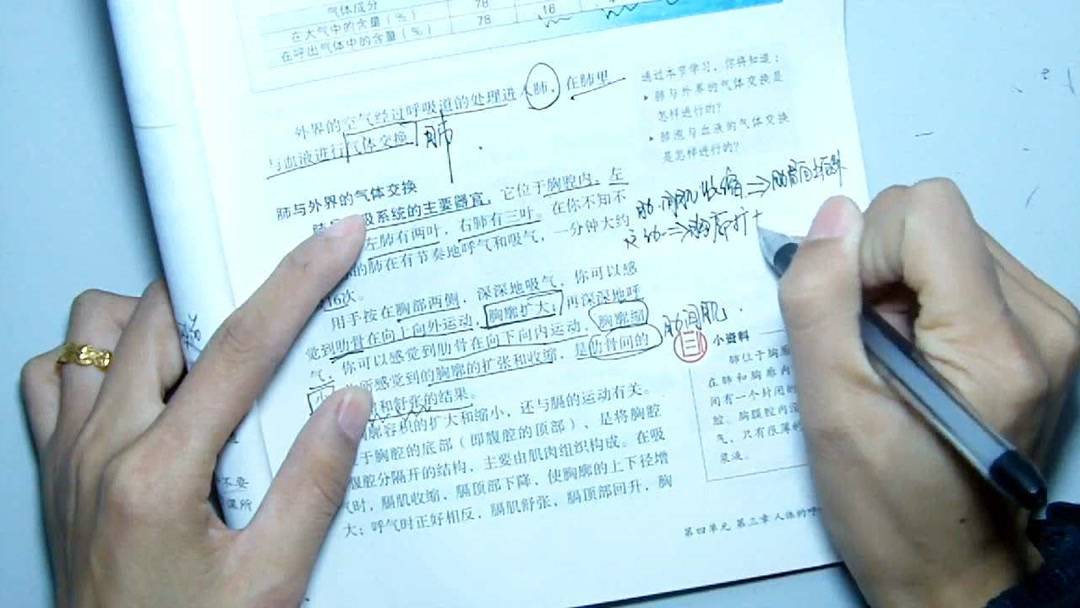 气体成分
在大气中的含量(%) 78
在呼出气体中的含量(%) 78 16
外界的空气经过呼吸道的处理进入肺,在肺里
与血液进行气体交换 肺
通过本节学习,你将知道:
肺与外界的气体交换是
怎样进行的?
肺泡与血液的气体交换
是怎样进行的?
肺与外界的气体交换
吸系统的主要器官。它位于胸腔内,左
左肺有两叶,右肺有三叶。在你不知不
的肺在有节奏地呼气和吸气,一分钟大约
16次。
肋间肌收缩⇒肋骨向上向外
运动⇒胸廓扩
用手按在胸部两侧,深深地吸气,你可以感
觉到肋骨在向上向外运动,胸廓扩大;再深深地呼
气,你可以感觉到肋骨在向下向内运动,胸廓缩
小。所感觉到的胸廓的扩张和收缩,是肋骨间的
和舒张的结果。
肋间肌
三
廓容积的扩大和缩小,还与膈的运动有关。
于胸腔的底部(即腹腔的顶部),是将胸腔
腹腔分隔开的结构,主要由肌肉组织构成。在吸
气时,膈肌收缩,膈顶部下降,使胸廓的上下径增
大;呼气时正好相反,膈肌舒张,膈顶部回升,胸
小资料
肺位于胸廓
在肺和胸廓内
间有一个封闭的
腔。胸膜腔内没
气,只有很薄的
浆液。
第四单元 第三章 人体的呼
不要